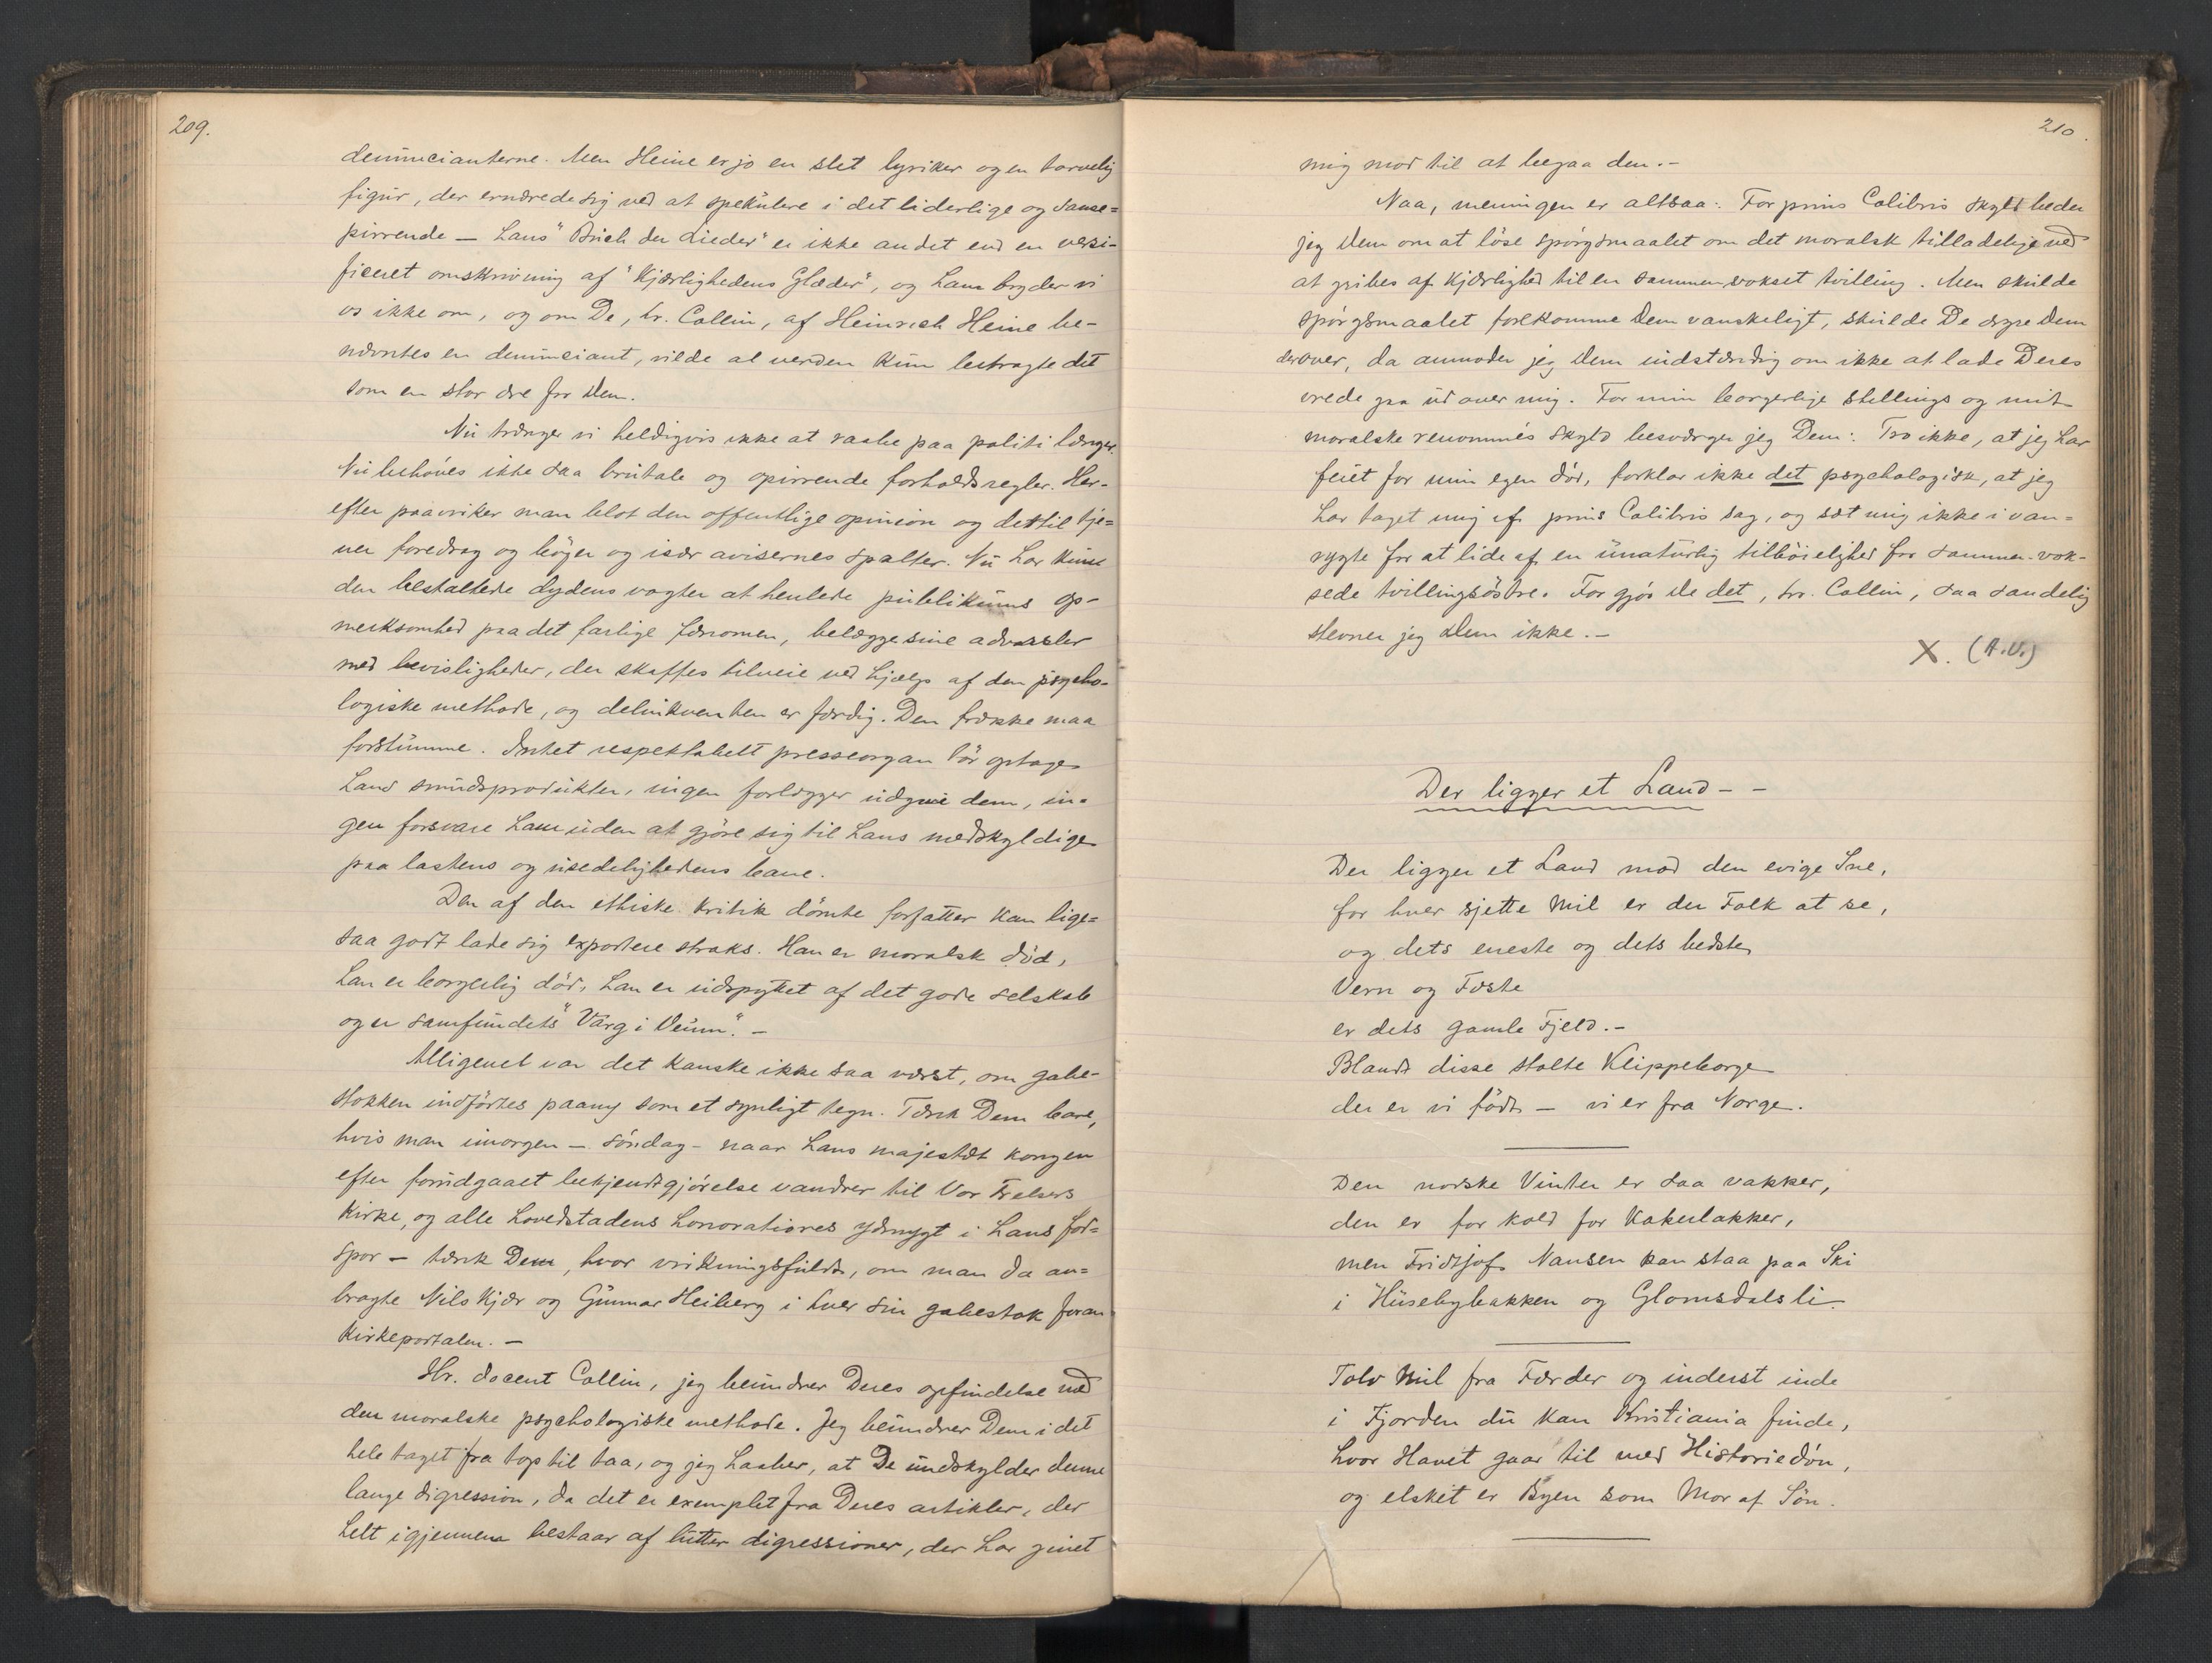 209.
denunncianterne. Men Heine er jo en slet lyriker og en tarvelig
figur, der ernærede sig ved at spekulere i det liderlige og sanse=
pirrende — hans "Buch der Lieder" er ikke andet end en versi-
ficeret omskrivning af "Kjærlighedens Glæder", og ham bryder vi
os ikke om, og om De, hr. Collin, af Heinrich Heine be-
nævntes en denunciant, vilde al verden kun betragte det
som en stor ære for Dem.
Nu trænger vi heldigvis ikke at raabe paa politi længer.
Nu behøves ikke saa brutale og opirrende forholdsregler. Her-
efter paavirker man blot den offentlige opinion og dertil tje=
ner foredrag og bøger og især avisernes spalter. Nu har kun
den bestaltede dydens vogter at henlede publikums op-
merksomhed paa det farlige fænomen, belægge sine advarsler
med bevisligheder, der skaffes tilveie ved hjælp af den psycho-
logiske methode, og delinkventen er færdig. Den frække maa
forstumme. Intet respektabelt presseorgan tør optage
hans smudsprodukter, ingen forlægger udgive dem, in-
gen forsvare ham uden at gjøre sig til hans medskyldige
paa lastens og usedelighedens bane.
Den af den ethiske kritik dømte forfatter kan lige=
saa godt lade sig exportere straks. Han er moralsk død,
han er borgerlig død, han er udspyttet af det gode selskab
og er samfundets "Varg i Veum". —
Alligevel var det kanske ikke saa værst, om gabe-
stokken indførtes paany som et synligt tegn. Tænk Dem bare,
hvis man imorgen — søndag — naar hans majestæt kongen
efter forudgaaet bekjendtgjørelse vandrer til Vor Frelsers
kirke, og alle hovedstadens honoratiores ydmygt i hans fod=
spor — tænk Dem, hvor virkningsfuldt, om man da an=
bragte Nils Kjær og Gunnar Heiberg i hver sin gabestok foran
kirkeportalen. —
Hr. docent Collin, jeg beundrer Deres opfindelse med
den moralske psychologiske methode. Jeg beundrer Dem i det
hele taget fra top til taa, og jeg haaber, at De undskylder denne
lange digression, da det er exemplet fra Deres artikler, der
helt igjennem bestaar af lutter digressioner, der har givet
210.
mig mod til at begaa den. —
Naa, meningen er altsaa: For prins Colibris skyld beder
jeg Dem om at løse spørgsmaalet om det moralsk tilladelige ved
at gribes af kjærlighed til en sammenvokset tvilling. Men skulde
spørgsmaalet forekomme Dem vanskeligt, skulde De ærgre Dem
derover, da anmoder jeg Dem indstændig om ikke at lade Deres
vrede gaa ud over mig. For min borgerlige stillings og mit
moralske renommés skyld besværger jeg Dem: Tro ikke, at jeg har
feiet for min egen dør, forklar ikke det psychologisk, at jeg
har taget mig af prins Colibris sag, og sæt mig ikke i van=
rygte for at lide af en unaturlig tilbøielighed for sammen-vok-
sede tvillingsøstre. For gjør De det, hr. Collin, saa sandelig
stevner jeg Dem ikke. —
X. (A.V.)
Der ligger et Land - -
Der ligger et Land mod den evige Sne,
for hver sjette Mil er der Folk at se,
og dets eneste og dets bedste
Vern og Fæste
er dets gamle Fjeld. —
Blandt disse stolte Klippeborge
der er vi født — vi er fra Norge.
Den norske Vinter er saa vakker,
den er for kold for Kakerlakker,
men Fridtjof Nansen kan staa paa Ski
i Husebybakken og Glomsdalsli.
Tolv Mil fra Færder og inderst inde
i Fjorden du kan Kristiania finde,
hvor Havet gaar til med Historiedøn,
og elsket er Byen som Mor af Søn.